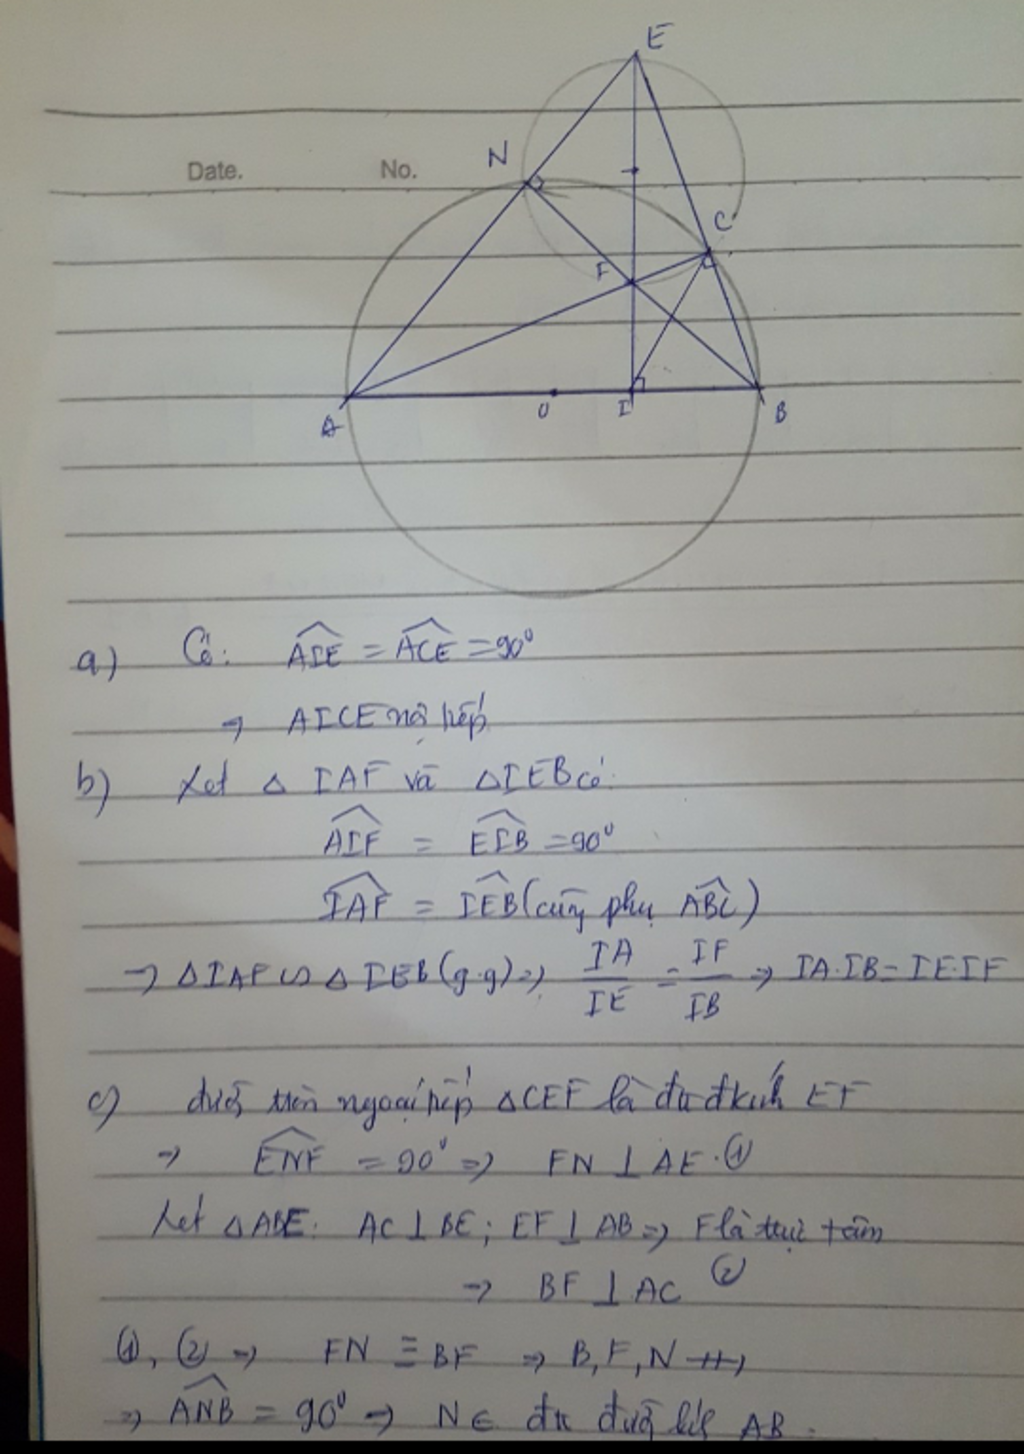 E
Date. No. N
C
F
A O I B
a) Có: AIE = ACE = 90⁰
⇒ AICE nội tiếp
b) Xét Δ IAF và Δ IEB có:
AIF = EIB = 90⁰
IAF = IEB (cùng phụ ABC)
→ Δ IAF ∽ Δ IEB (g.g) ⇒ IA/IE = IF/IB ⇒ IA.IB = IE.IF
c) đường tròn ngoại tiếp Δ CEF là đtr đkính EF
⇒ ENF = 90⁰ ⇒ FN ⊥ AE. ①
Xét Δ ABE: AC ⊥ BE; EF ⊥ AB ⇒ F là trực tâm
⇒ BF ⊥ AC ②
①, ② ⇒ FN ≡ BF ⇒ B, F, N -H-,
⇒ ANB = 90⁰ ⇒ N ∈ đtr đường kính AB.